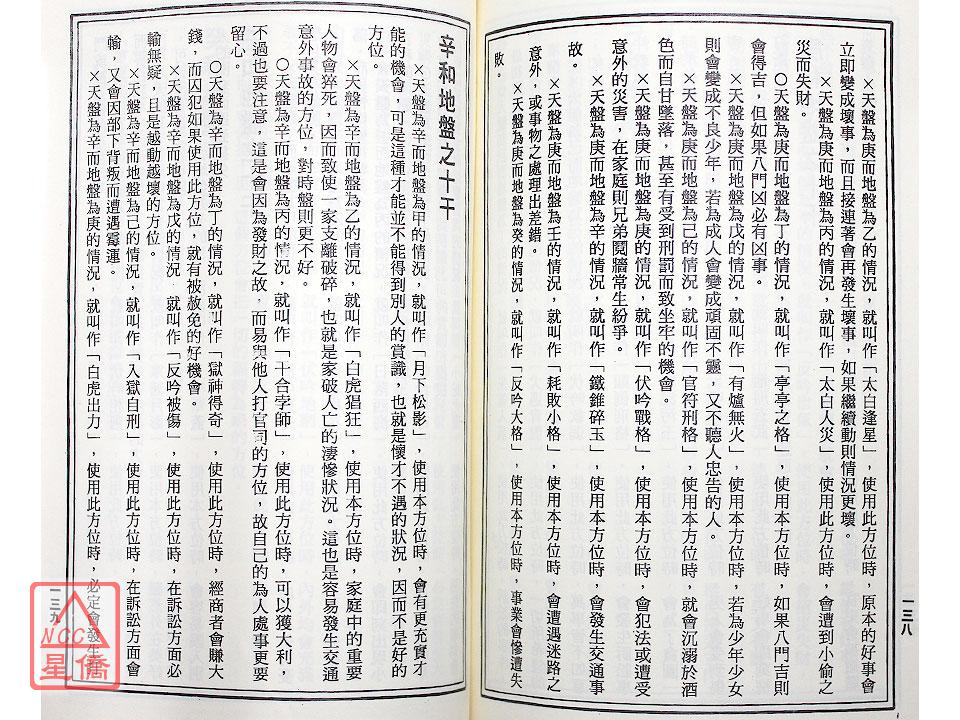 ×天盤為庚而地盤為乙的情況，就叫作「太白逢星」，使用此方位時，原本的好事會
立即變成壞事，而且接連著會再發生壞事，如果繼續動則情況更壞。
×天盤為庚而地盤為丙的情況，就叫作「太白人災」，使用此方位時，會遭到小偷之
災而失財。
○天盤為庚而地盤為丁的情況，就叫作「亭亭之格」，使用本方位時，如果八門吉則
會得吉，但如果八門凶必有凶事。
×天盤為庚而地盤為戊的情況，就叫作「有爐無火」，使用本方位時，若為少年少女
則會變成不良少年，若為成人會變成頑固不靈，又不聽人忠告的人。
×天盤為庚而地盤為己的情況，就叫作「官符刑格」，使用本方位時，就會沉溺於酒
色而自甘墜落，甚至有受到刑罰而致坐牢的機會。
×天盤為庚而地盤為庚的情況，就叫作「伏吟戰格」，使用本方位時，會犯法或遭受
意外的災害，在家庭則兄弟鬩牆常生紛爭。
×天盤為庚而地盤為辛的情況，就叫作「鐵錐碎玉」，使用本方位時，會發生交通事
故。
×天盤為庚而地盤為壬的情況，就叫作「耗敗小格」，使用本方位時，會遭遇迷路之
意外，或事物之處理出差錯。
×天盤為庚而地盤為癸的情況，就叫作「反吟大格」，使用本方位時，事業會慘遭失
敗。
一三八
辛和地盤之十干
×天盤為辛而地盤為甲的情況，就叫作「月下松影」，使用本方位時，會有更充實才
能的機會，可是這種才能並不能得到別人的賞識，也就是懷才不遇的狀況，因而不是好的
方位。
×天盤為辛而地盤為乙的情況，就叫作「白虎猖狂」，使用本方位時，家庭中的重要
人物會猝死，因而致使一家支離破碎，也就是家破人亡的淒慘狀況。這也是容易發生交通
意外事故的方位，對時盤則更不好。
○天盤為辛而地盤為丙的情況，就叫作「干合孛師」，使用此方位時，可以獲大利，
不過也要注意，這是會因為發財之故，而易與他人打官司的方位，故自己的為人處事更要
留心。
○天盤為辛而地盤為丁的情況，就叫作「獄神得奇」，使用此方位時，經商者會賺大
錢，而囚犯如果使用此方位，就有被赦免的好機會。
×天盤為辛而地盤為戊的情況，就叫作「反吟被傷」，使用此方位時，在訴訟方面必
輸無疑，且是越動越壞的方位。
×天盤為辛而地盤為己的情況，就叫作「入獄自刑」，使用此方位時，在訴訟方面會
輸，又會因部下背叛而遭遇霉運。
×天盤為辛而地盤為庚的情況，就叫作「白虎出力」，使用此方位時，必定會發生
一三九
NCC
星僑